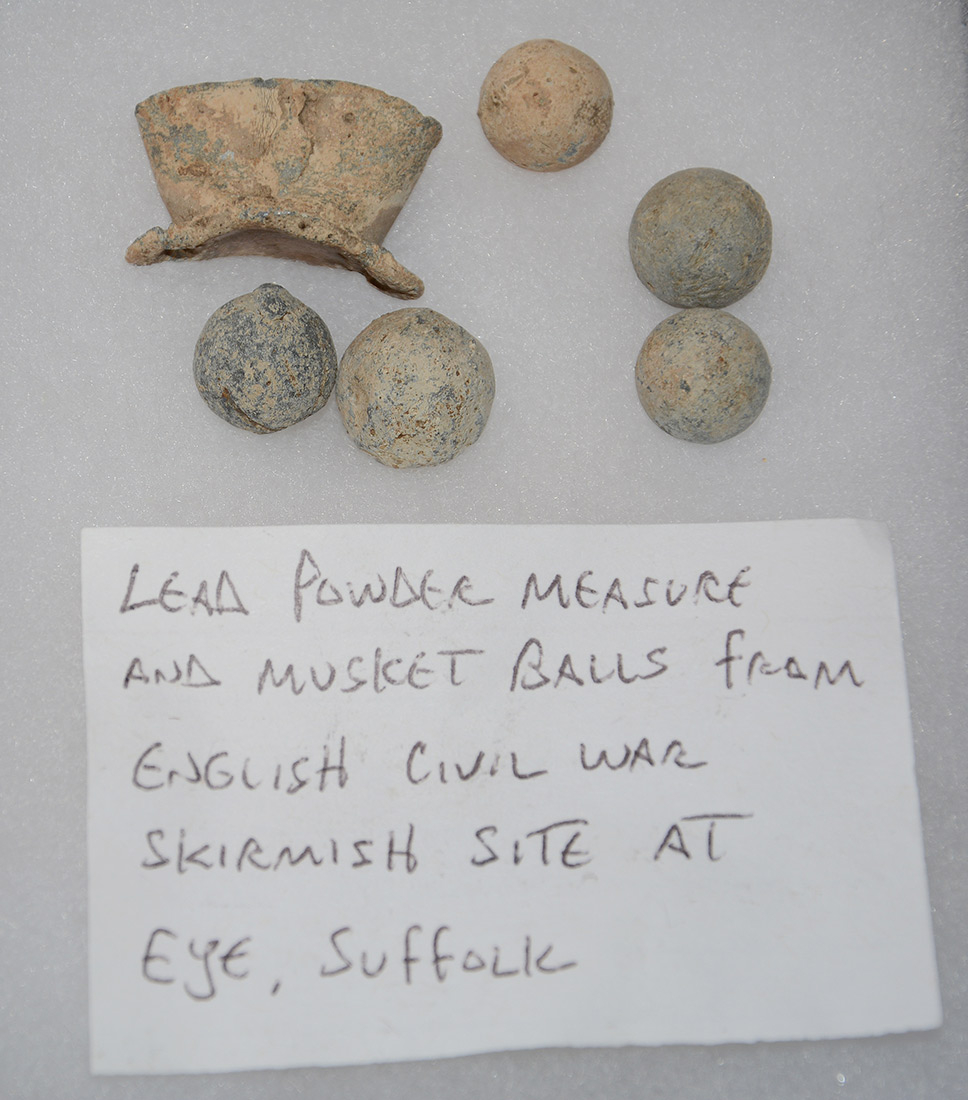 LEAD POWDER MEASURE
AND MUSKET BALLS FROM
ENGLISH CIVIL WAR
SKIRMISH SITE AT
EYE, SUFFOLK